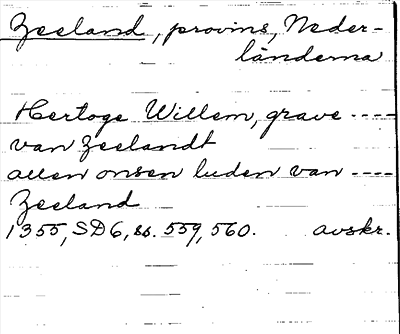 Zeeland, provins, Neder-
länderna
Hertoge Willem, grave ----
van Zeelandt
allen onsen luden van ----
Zeeland
1355, SD6, ss. 559, 560. avskr.